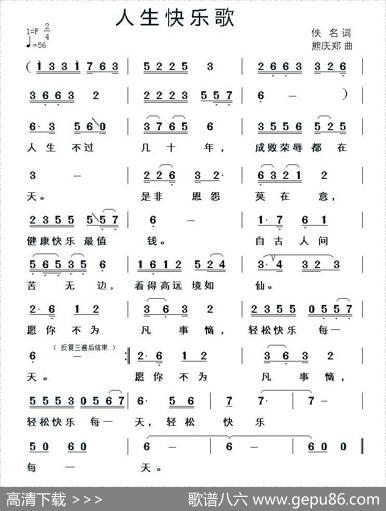 人生快乐歌
1=F 2/4
♩=56
佚 名 词
熊庆郑 曲
( 1 3 3 1 7 6 3 5 2 2 5 3 2 6 6 3 3 2 6
3 6 6 3 2 2 2 5 5 3 2 6 — )
6· 3 5 6 0 3 7 6 5 6 3 5 5 6 5 2 5
人 生 不过 几 十 年， 成败荣辱 都 在
3 — 6 3 2 1 2 3 1 7 6
天。 是非 恩怨 莫 在 意，
2 3 5 5 5 5 7 6 — 1· 7 6 1
健康快乐 最值 钱。 自 古 人间
5 6 5 3 5 6 1 6 1 2 5 2 4 3· 4 3 2 3
苦 无 边， 看得高远 境如 仙。
2· 6 1 3 6 3 2 3 5 5 0 5 5 7
愿 你 不为 凡 事 恼， 轻松快乐 每一
6 — ( 反复三遍后结束 ) 2· 6 1 3 6 3
天。 愿 你 不为 凡 事 恼，
2 3 5 5 0 5 6 7 6· 2 7 7
轻松快乐 每一 天， 轻 松 快 乐
5 0 6 0 6 — 6 — 6 0 6 0
每 一 天。
高清下载 >>>
歌谱八六 www.gepu86.com